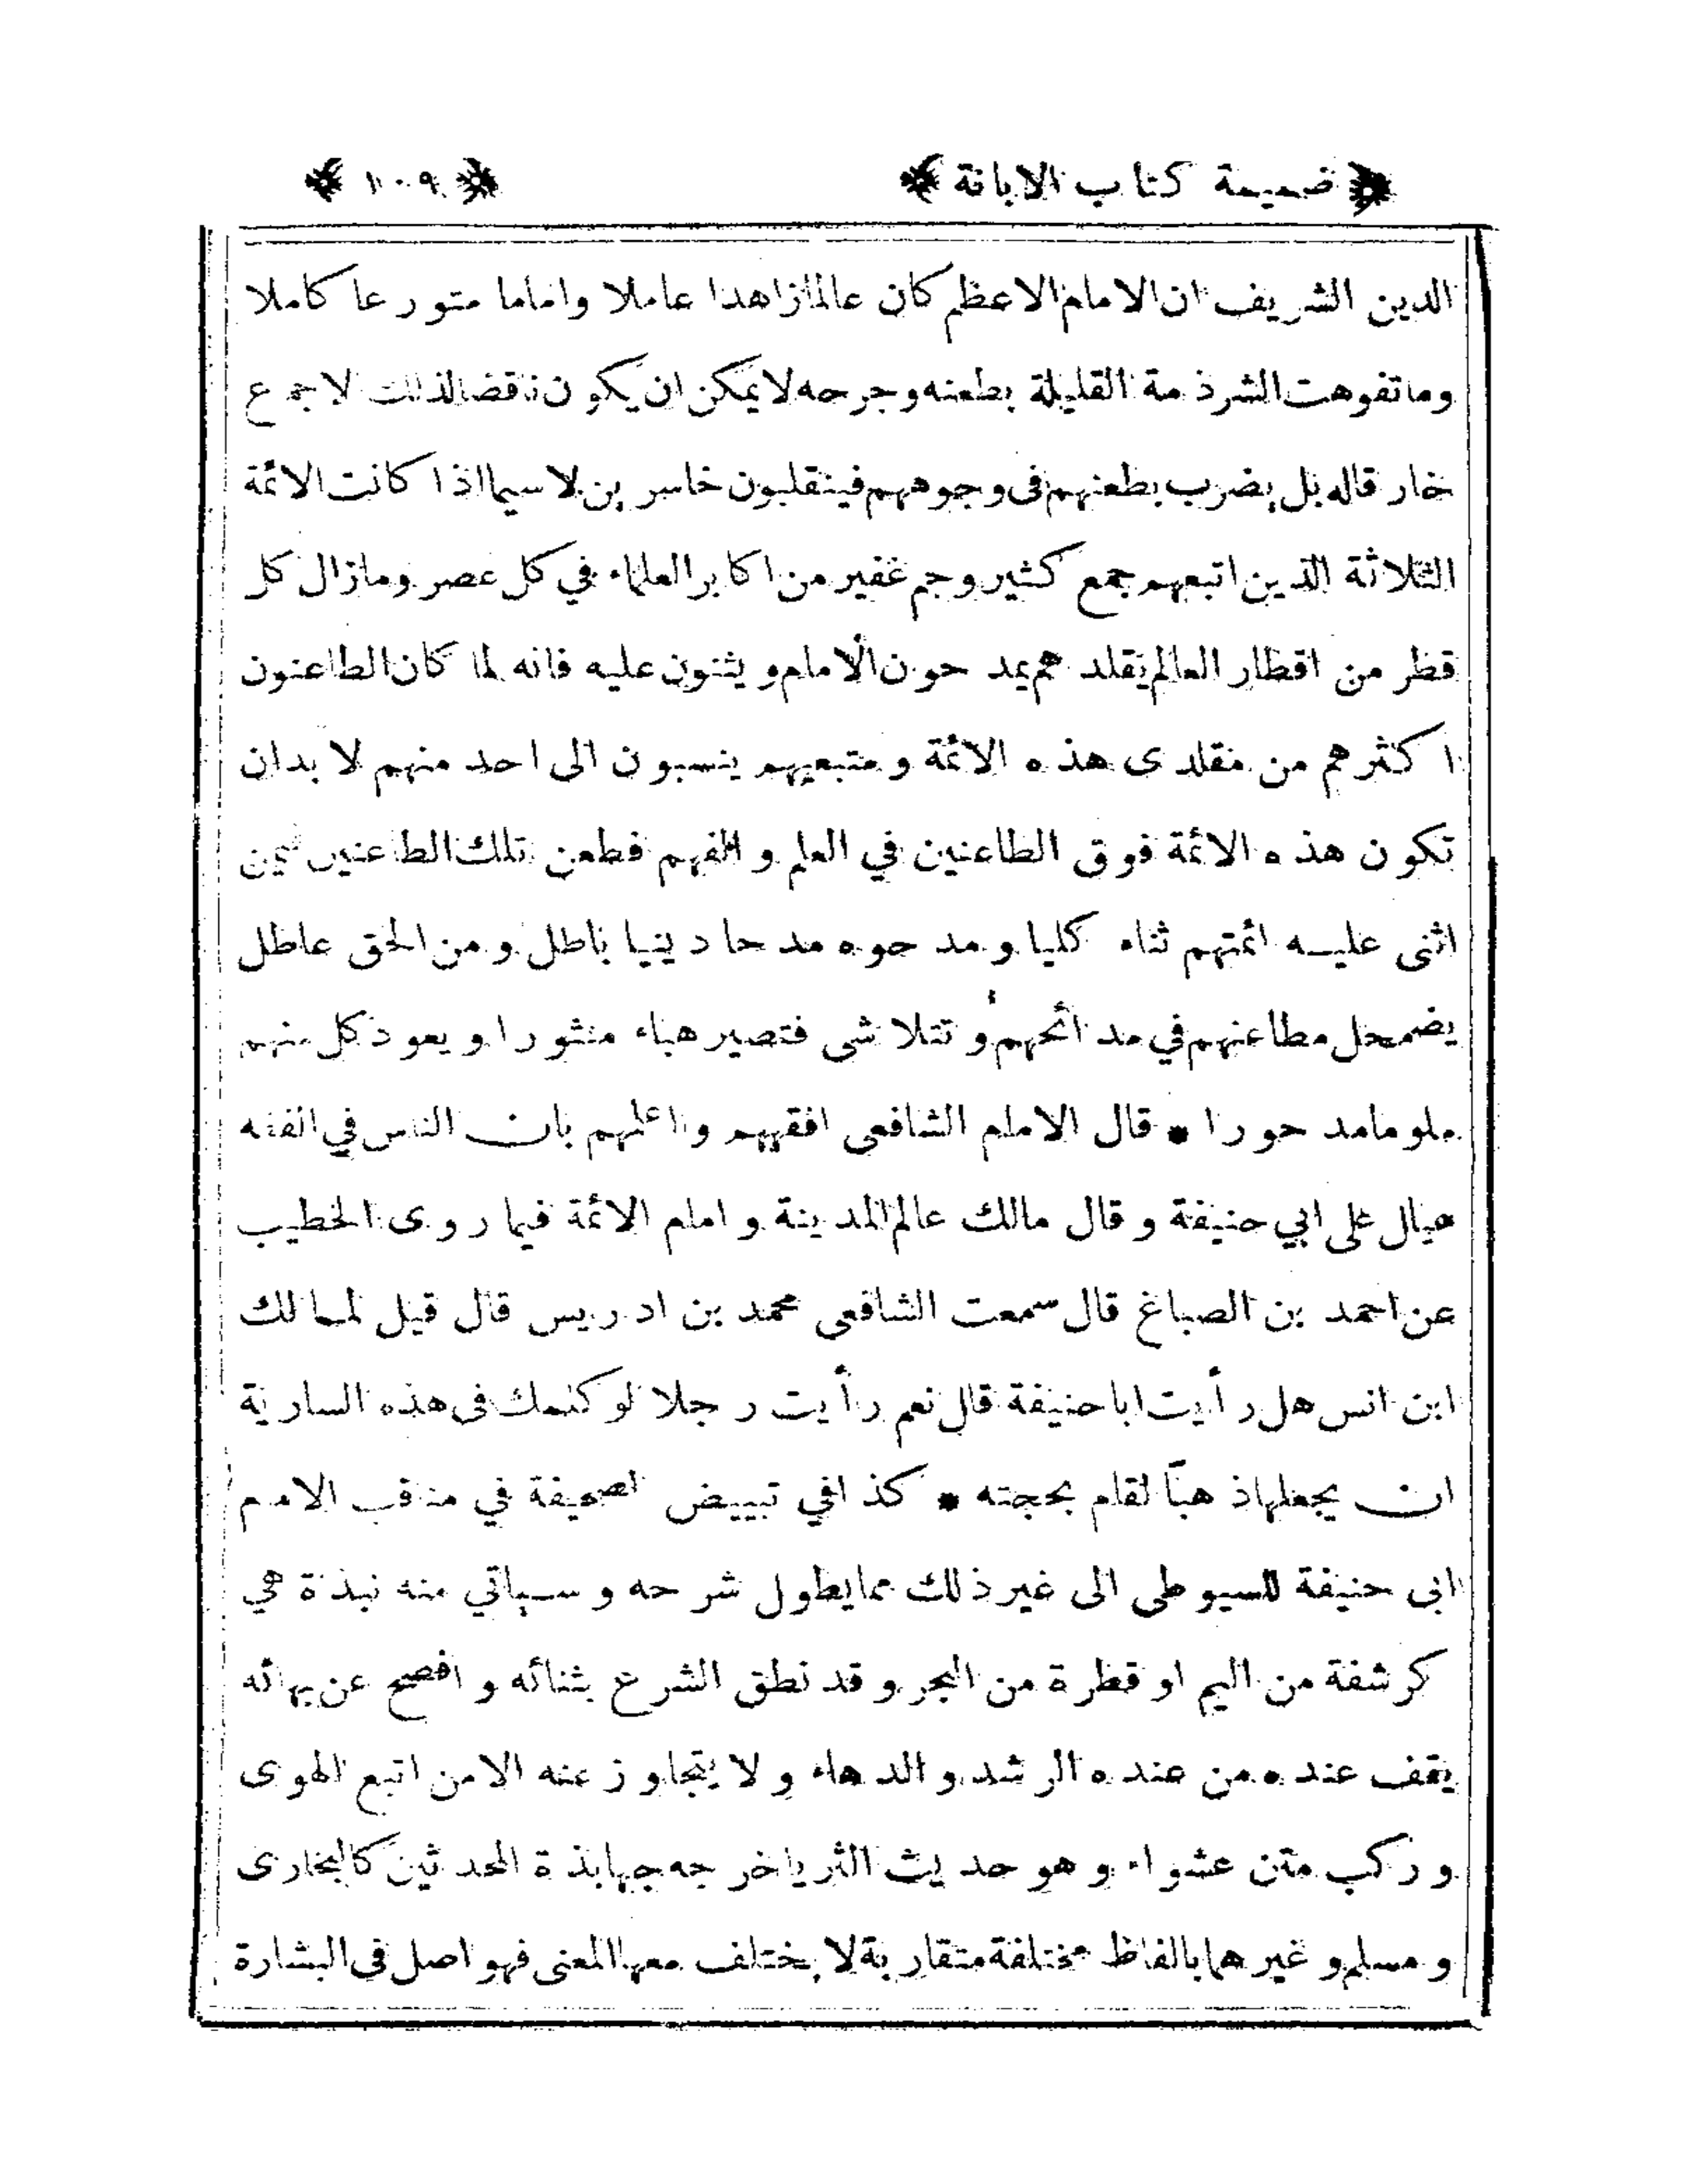 ضميمة كتاب الابانة ١٠٩
الدين الشريف ان الامام الاعظم كان عالما زاهدا عاملا واماما متورعا كاملا
وما تفوهت الشرذمة القليلة بطعنه وجرحه لا يمكن ان يكون ناقضا لذلك الاجماع
خارقا له بل يضرب بطعنهم فى وجوههم فينقلبون خاسرين لا سيما اذا كانت الائمة
الثلاثة الذين اتبعهم جمع كثير وجم غفير من اكابر العلماء في كل عصر وما زال كل
قطر من اقطار العالم يقلد هم يمد حون الامام و يثنون عليه فانه لما كان الطاعنون
اكثرهم من مقلدى هذه الائمة و متبعيهم ينسبون الى احد منهم لا بد ان
تكون هذه الائمة فوق الطاعنين في العلم و الفهم فطعن تلك الطاعنين فيمن
اثنى عليه ائمتهم ثناء كليا و مدحوه مدحا دينيا باطل و من الحق عاطل
يضمحل مطاعنهم في مدائحهم و تتلاشى فتصير هباء منثورا و يعود كل منهم
ملوما مدحورا * قال الامام الشافعى افقههم و اعلمهم بان الناس في الفقه
عيال على ابي حنيفة و قال مالك عالم المدينة و امام الائمة فيما روى الخطيب
عن احمد بن الصباغ قال سمعت الشافعى محمد بن ادريس قال قيل لمالك
ابن انس هل رأيت ابا حنيفة قال نعم رأيت رجلا لو كلمك فى هذه السارية
ان يجعلها ذهباً لقام بحجته * كذا في تبييض الصحيفة في مناقب الامام
ابى حنيفة للسيوطى الى غير ذلك مما يطول شرحه و سياتي منه نبذة هي
كرشفة من اليم او قطرة من البحر و قد نطق الشرع بثنائه و افصح عن بهائه
يقف عنده من عنده الرشد و الدهاء و لا يتجاوز عنه الا من اتبع الهوى
و ركب متن عشواء و هو حديث الثريا خرجه جهابذة المحدثين كالبخارى
و مسلم و غيرهما بالفاظ مختلفة متقاربة لا يختلف معها المعنى فهو اصل فى البشارة